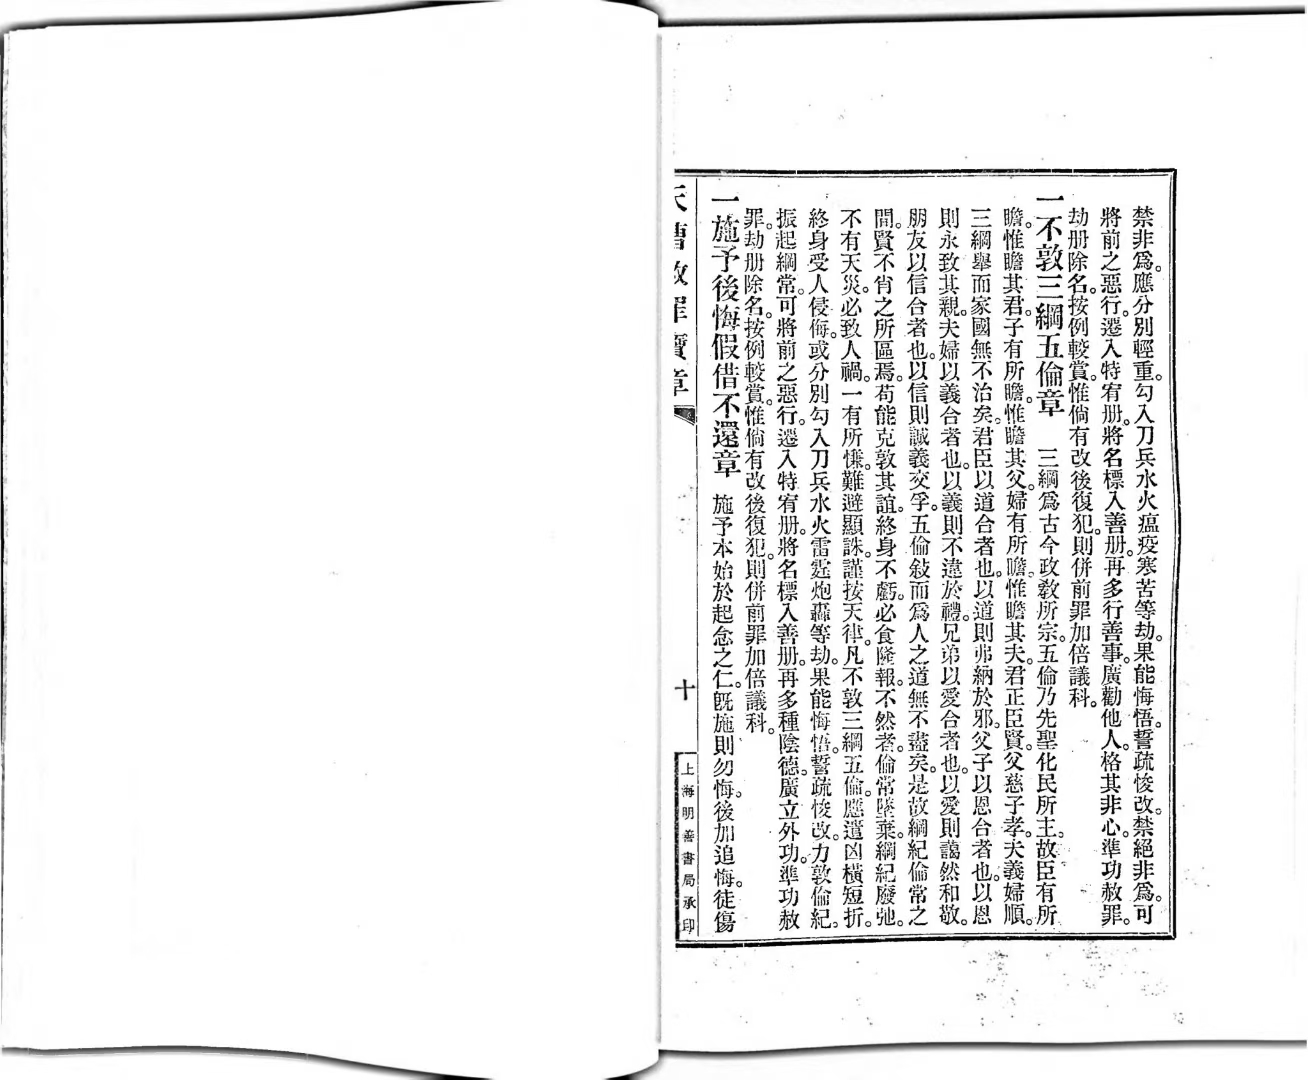 禁非爲。應分別輕重。勾入刀兵水火瘟疫寒苦等劫。果能悔悟。誓疏悛改。禁絕非爲。可
將前之惡行。遷入特宥册。將名標入善册。再多行善事。廣勸他人。格其非心。準功赦罪。
劫册除名。按例較賞。惟倘有改後復犯。則併前罪加倍議科。
一不敦三綱五倫章　三綱爲古今政敎所宗。五倫乃先聖化民所主。故臣有所
瞻。惟瞻其君。子有所瞻。惟瞻其父。婦有所瞻。惟瞻其夫。君正臣賢。父慈子孝。夫義婦順。
三綱舉而家國無不治矣。君臣以道合者也。以道則弗納於邪。父子以恩合者也。以恩
則永致其親。夫婦以義合者也。以義則不違於禮。兄弟以愛合者也。以愛則藹然和敬。
朋友以信合者也。以信則誠義交孚。五倫敍而爲人之道無不盡矣。是故綱紀倫常之
間。賢不肖之所區焉。苟能克敦其誼。終身不虧。必食隆報。不然者。倫常墜棄。綱紀廢弛。
不有天災。必致人禍。一有所慊。難避顯誅。謹按天律。凡不敦三綱五倫。應遣凶橫短折。
終身受人侵侮。或分別勾入刀兵水火雷霆炮轟等劫。果能悔悟。誓疏悛改。力敦倫紀。
振起綱常。可將前之惡行。遷入特宥册。將名標入善册。再多種陰德。廣立外功。準功赦
罪。劫册除名。按例較賞。惟倘有改後復犯。則併前罪加倍議科。
一施予後悔假借不還章　施予本始於起念之仁。旣施則勿悔。後加追悔。徒傷
天曹赦罪寶章
十
上海明善書局承印